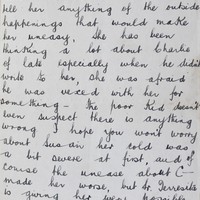 tell her anything of the outside
happenings that would make
her uneasy. She has been
thinking a lot about Charlie
of late especially when he didn't
write to her, she was afraid
he was vexed with her for
something - the poor kid doesn't
even suspect there is anything
wrong. I hope you won't worry
about Susan her cold was
a bit severe at first, and of
course the unease about C—
made her worse, but Dr.
is giving her every possible